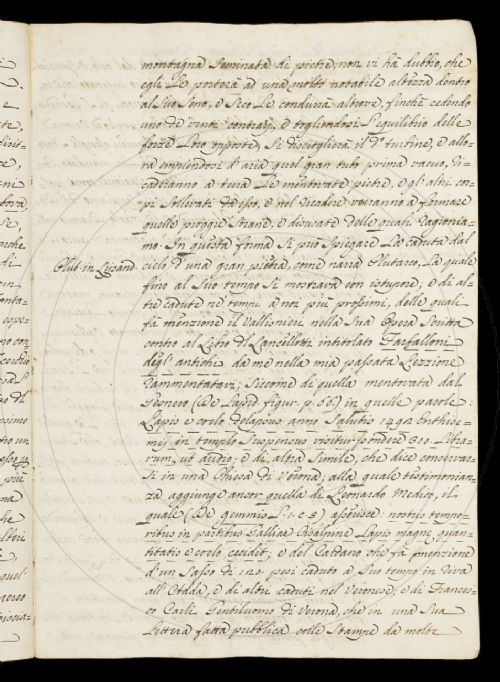 montagna seminata di pietre, non vi hà dubbio, che
egli le porterà ad una molto notabile altezza dentro
al suo seno, e seco le condurrà altrove, finchè cedendo
uno de' venti contrarj, e togliendosi l'equilibrio delle
forze loro opposte, si discioglierà il dº turbine, e allo=
ra empiendosi d'aria quel gran tubo prima vacuo, ri=
caderanno a terra le mentovate pietre, e gl' altri cor=
pi sollevati da esso, e nel ricadere verranno à formare
quelle pioggie strane, e disusate delle quali ragionia=
mo. In questa forma si può spiegare la caduta dal
Plut: in Lysand. cielo d'una gran pietra, come narra Plutarco, la quale
fino al suo tempo si mostrava con istupore, e di al=
tre cadute ne' tempi a noi più prossimi, delle quali
fà menzione il Vallisnieri nella sua Opera scritta
contro al Libro di Lancillotti intitolato Farfalloni
degl' antichi da me nella mia passata Lezzione
rammentatavi; siccome di quella mentovata dal
Gesnero (De Lapid. figur. p. 66.) in quelle parole:
Lapis e coelo delapsus anno salutis 1492 Enthise=
mij in templo suspensus visitur pondere 300. libra=
rum, ut audio; e di altra simile, che dice conservar=
si in una Chiesa di Verona; alla quale testimonian=
za aggiunge ancor quella di Leonardo Medico, il
quale (De gemmis L: 1. c. 5.) asserisce: nostris tempo=
ribus in partibus Galliae Cisalpinae lapis magnae quan=
titatis e coelo cecidit; e del Cardano che fà menzione
d'un sasso di 120 pesi caduto a suo tempo in riva
all' Adda, e di altri caduti nel Veronese, e di France=
sco Carli Gentiluomo di Verona, che in una sua
Lettera fatta pubblica colle stampe da molte